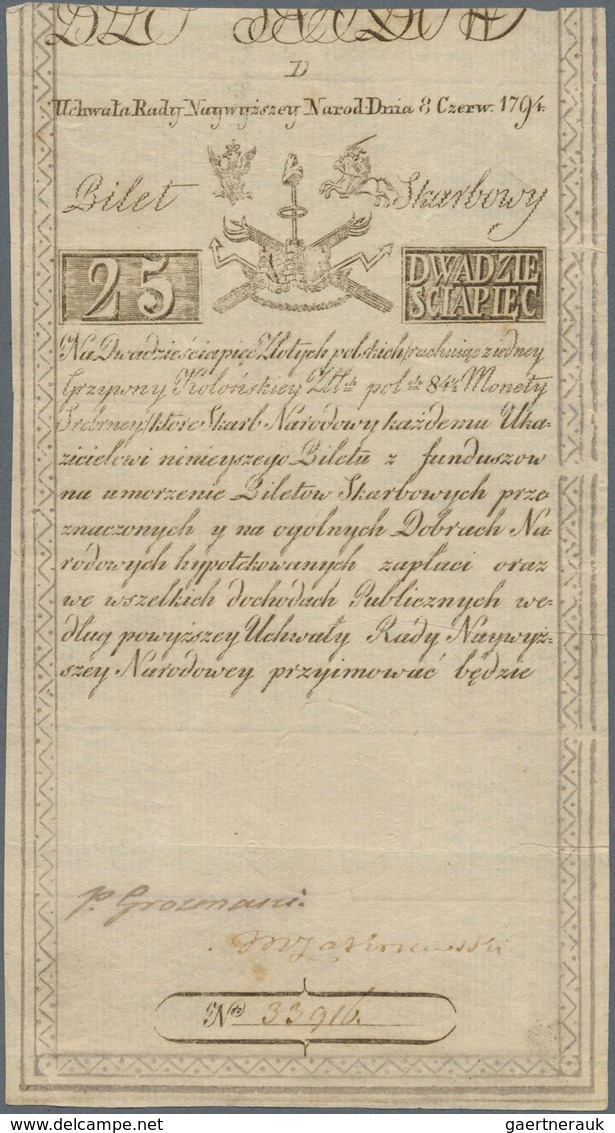 D
Uchwała Rady Naywyższey Narod: Dnia 8 Czerw: 1794.
Bilet Skarbowy
25
DWADZIE
ŚCIAPIĘĆ
Na Dwadzieściapięć Złotych polskich rachuiąc z iedney
Grzywny Kolońskiey Zł. pol. 84½ Monety
Srebrney, które Skarb Narodowy każdemu Uka-
zicielowi ninieyszego Biletu z funduszow
na umorzenie Biletow Skarbowych prze-
znaczonych y na ogolnych Dobrach Na-
rodowych hypotekowanych zapłaci oraz
we wszelkich dochodach Publicznych we-
dług powyższey Uchwały Rady Naywyż-
szey Narodowey przyimować będzie
P. Grozmani.
No 33916.
gaertnerauk @ delcampe.net